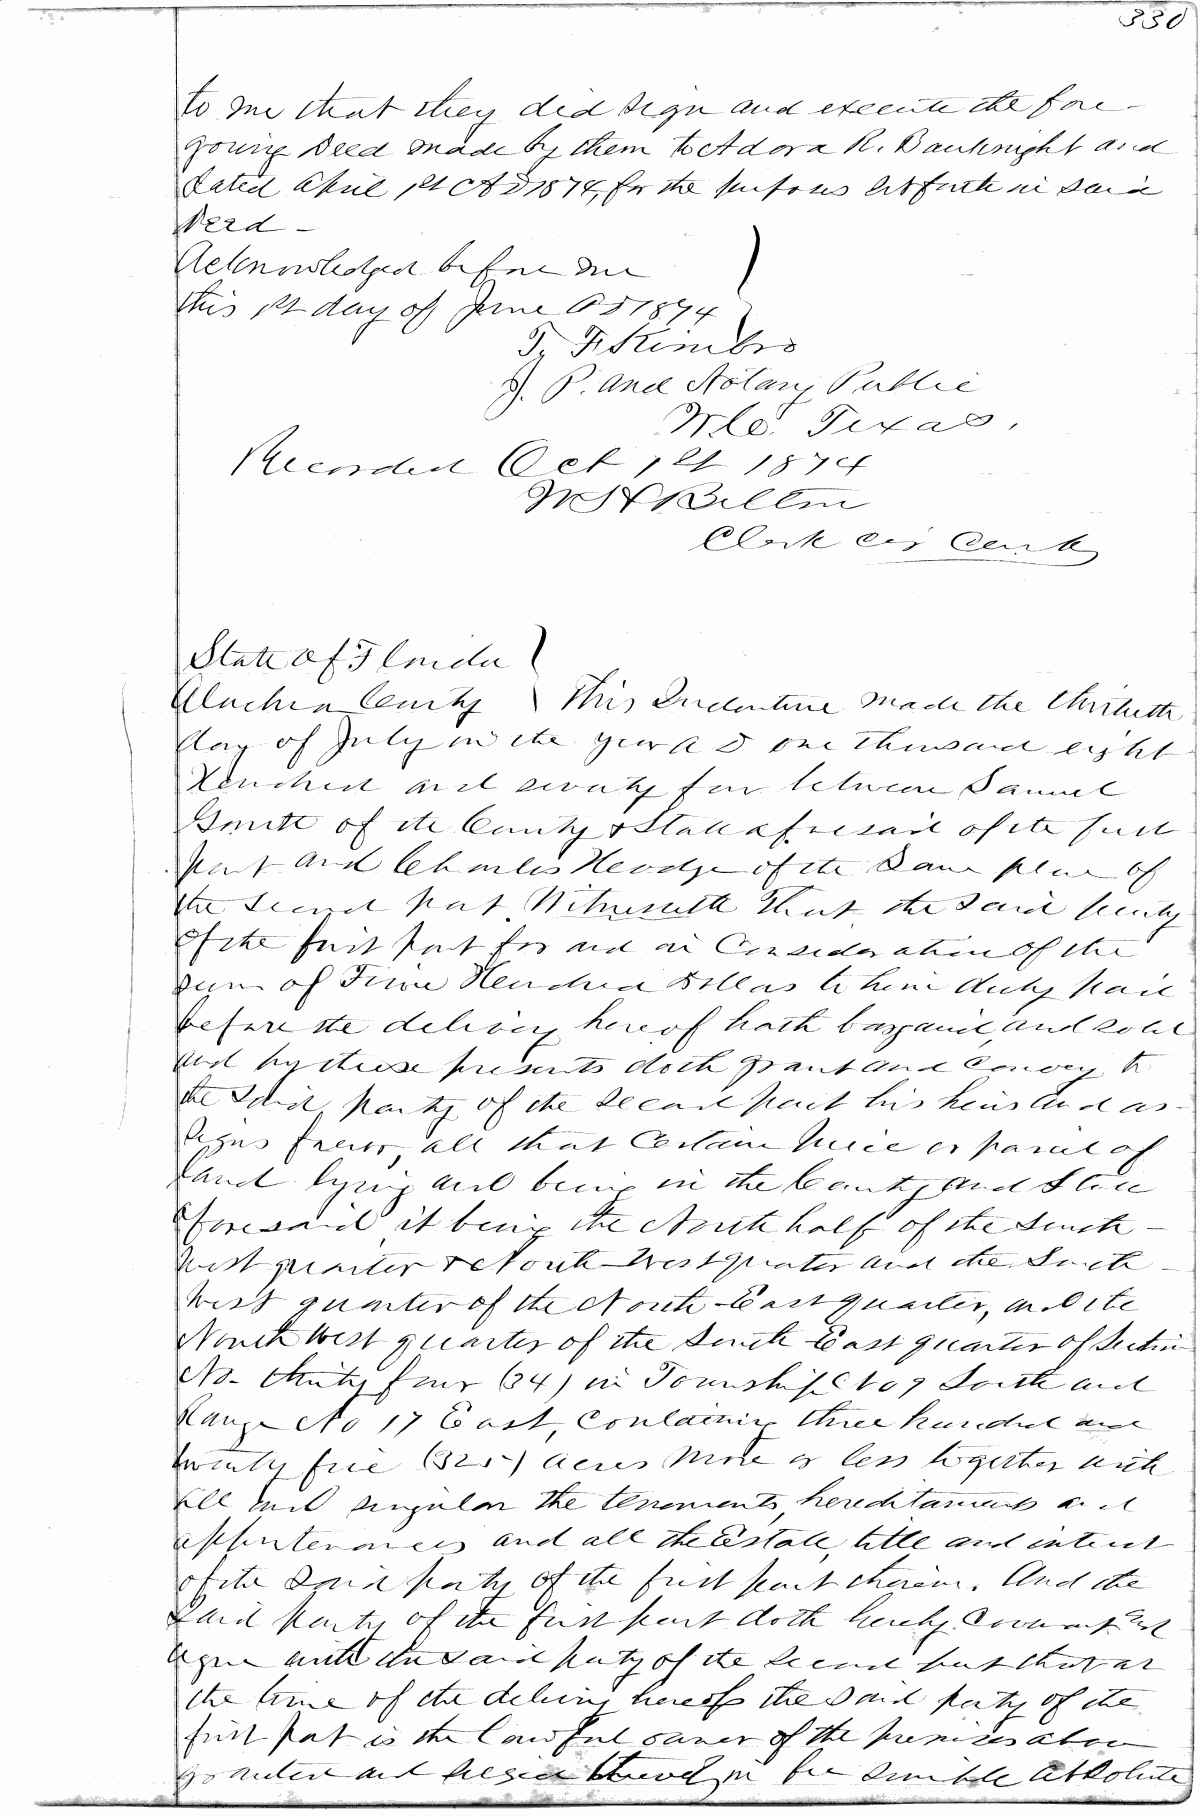 330
to me that they did sign and execute the fore-
going Deed made by them to Adora R. Bauknight and
dated April 1st AD 1874, for the purposes set forth in said
Deed -
Acknowledged before me
this 1st day of June AD 1874
T. F. Kimbro
J. P. and Notary Public
W.Co. Texas.
Recorded Oct 1st 1874
Clerk Cir Court
State of Florida
Alachua County This Indenture made the thirtieth
day of July in the year A D one thousand eight
Hundred and seventy four between Samuel
Smith of the County & State aforesaid of the first
part and Charles Hodge of the Same place of
the second part. Witnesseth That the said party
of the first part for and in Consideration of the
sum of Hundred dollars to him duly paid
before the delivery hereof hath bargained, and sold
and by these presents doth grant and Convey to
the said party of the second part his heirs and as-
signs forever, all that Certain piece or parcel of
land lying and being in the County and State
aforesaid, it being the North half of the South-
west quarter & North-West quarter and the South-
West quarter of the North-East quarter, and the
North West quarter of the South East quarter of Section
No- thirty four (34) in Township No 9 South and
Range No 17 East, Containing three hundred and
twenty five (325) acres more or less together with
all and singular the tenements, hereditaments and
appurtenances and all the Estate, title and interest
of the said party of the first part therein. And the
Said party of the first part doth hereby Covenant and
agree with the said party of the second part that at
the time of the delivery hereof the said party of the
first part is the lawful owner of the premises above
granted and seized thereof in fee simple absolute